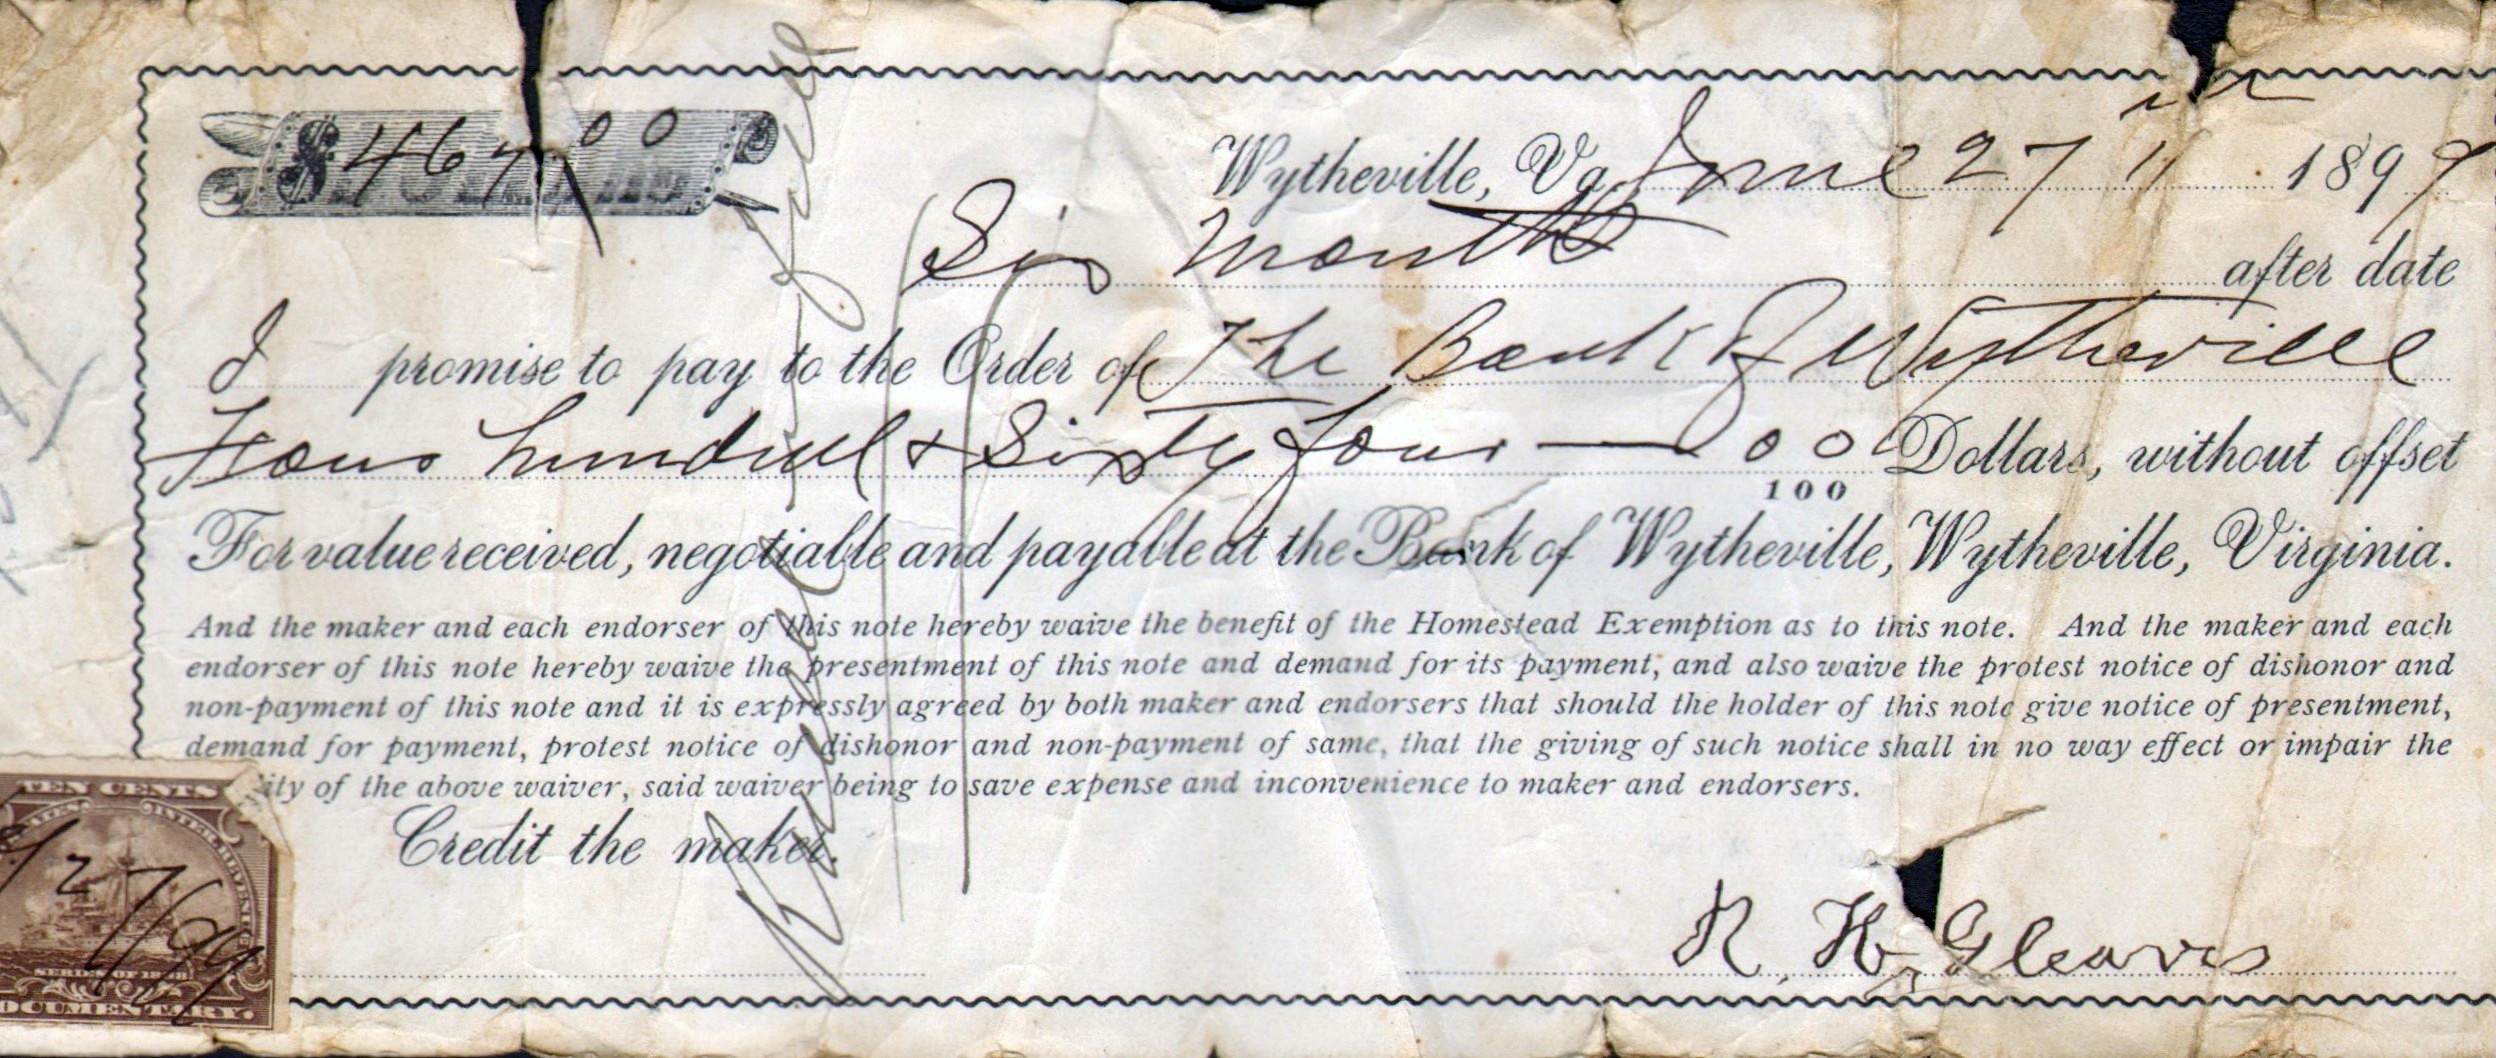 $ 464 00
Wytheville, Va. June 27th 1899
Six Months after date
I promise to pay to the Order of The Bank of Wytheville
Four hundred & Sixty four — 00/100 Dollars, without offset
For value received, negotiable and payable at the Bank of Wytheville, Wytheville, Virginia.
And the maker and each endorser of this note hereby waive the benefit of the Homestead Exemption as to this note. And the maker and each
endorser of this note hereby waive the presentment of this note and demand for its payment, and also waive the protest notice of dishonor and
non-payment of this note and it is expressly agreed by both maker and endorsers that should the holder of this note give notice of presentment,
demand for payment, protest notice of dishonor and non-payment of same, that the giving of such notice shall in no way effect or impair the
of the above waiver, said waiver being to save expense and inconvenience to maker and endorsers.
Credit the maker.
R. H. Gleaves
TEN CENTS
INTER. REVENUE
27/99
SERIES OF 1898
DOCUMENTARY.